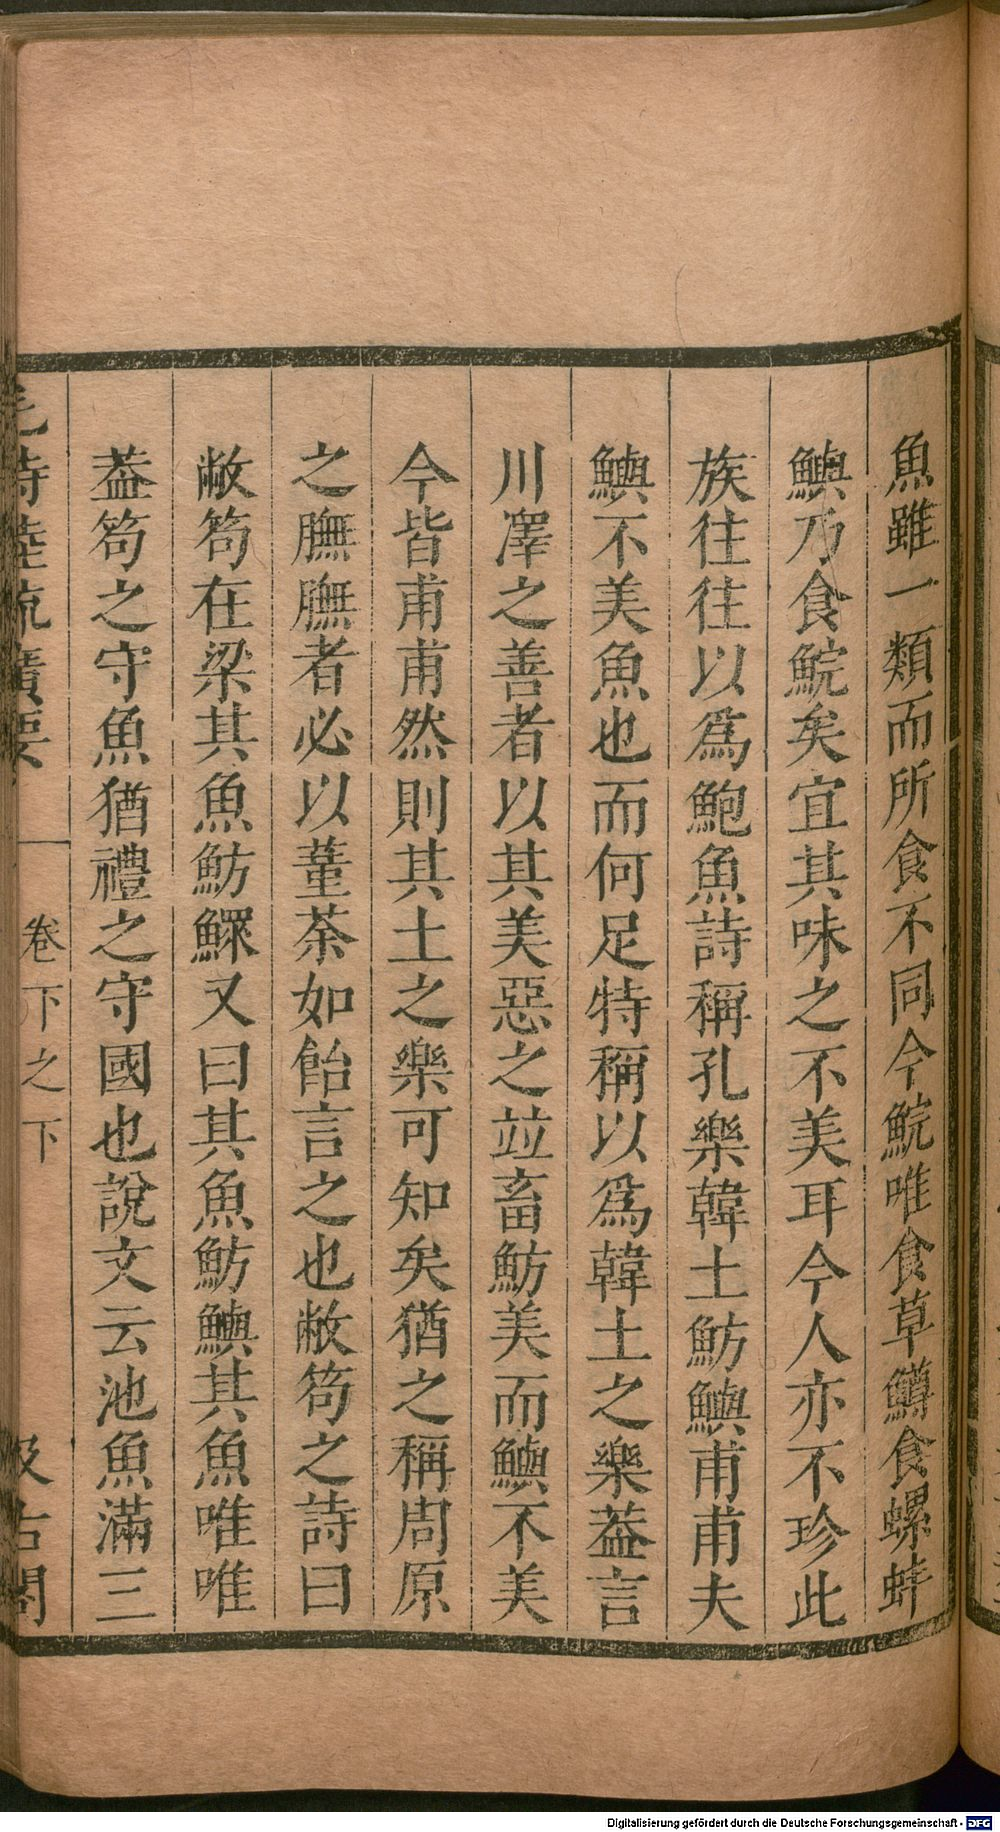 魚雖一類而所食不同今鯇唯食草鱒食螺蚌
鱮乃食鯇矣宜其味之不美耳今人亦不珍此
族往往以爲鮑魚詩稱孔樂韓土魴鱮甫甫夫
鱮不美魚也而何足特稱以爲韓土之樂葢言
川澤之善者以其美惡之竝畜魴美而鱮不美
今皆甫甫然則其土之樂可知矣猶之稱周原
之膴膴者必以菫荼如飴言之也敝笱之詩曰
敝笱在梁其魚魴鰥又曰其魚魴鱮其魚唯唯
葢笱之守魚猶禮之守國也說文云池魚滿三
毛詩陸疏廣要
卷下之下
汲古閣
Digitalisierung gefördert durch die Deutsche Forschungsgemeinschaft - DFG